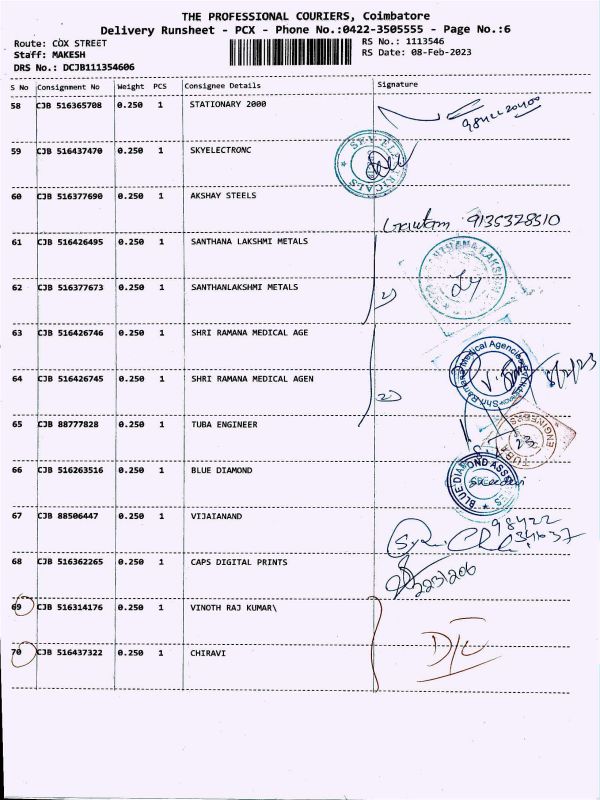 THE PROFESSIONAL COURIERS, Coimbatore
Delivery Runsheet - PCX - Phone No.:0422-3505555 - Page No.:6
Route: COX STREET
RS No.: 1113546
Staff: MAKESH
RS Date: 08-Feb-2023
DRS No.: DCJB111354606
S No Consignment No Weight PCS Consignee Details Signature
58 CJB 516365708 0.250 1 STATIONARY 2000
59 CJB 516437470 0.250 1 SKYELECTRONC
60 CJB 516377690 0.250 1 AKSHAY STEELS
9135378510
61 CJB 516426495 0.250 1 SANTHANA LAKSHMI METALS
62 CJB 516377673 0.250 1 SANTHANLAKSHMI METALS
63 CJB 516426746 0.250 1 SHRI RAMANA MEDICAL AGE
64 CJB 516426745 0.250 1 SHRI RAMANA MEDICAL AGEN
65 CJB 88777828 0.250 1 TUBA ENGINEER
TUBA ENGINEERS
66 CJB 516263516 0.250 1 BLUE DIAMOND
67 CJB 88506447 0.250 1 VIJAIANAND
98422
34637
68 CJB 516362265 0.250 1 CAPS DIGITAL PRINTS
69 CJB 516314176 0.250 1 VINOTH RAJ KUMAR\
70 CJB 516437322 0.250 1 CHIRAVI
D/L